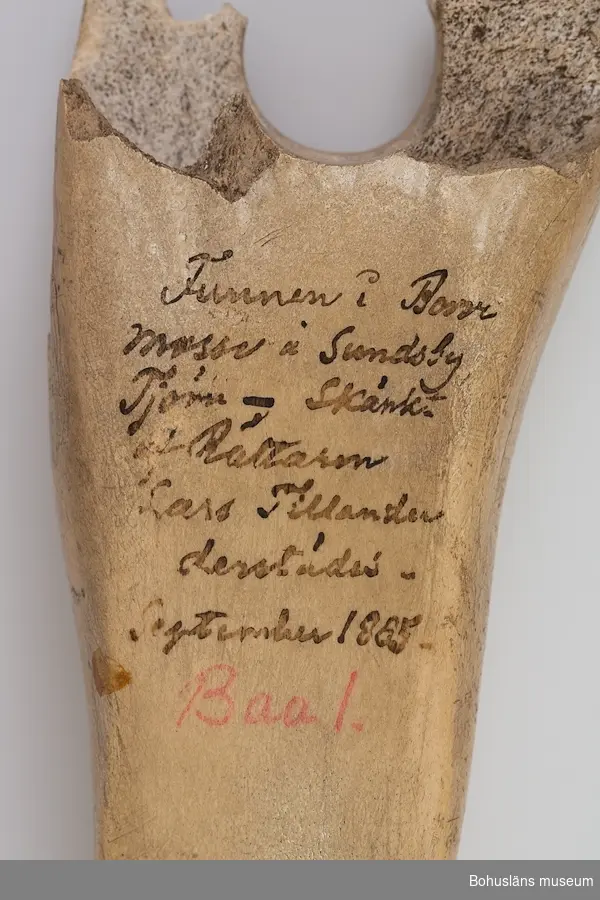 Funnen i Borr
mosse å Sundsby
Tjörn – Skänkt
af Rättaren
Lars Tillander
derstädes.
September 1865.
Baa 1.
Bohusläns museum